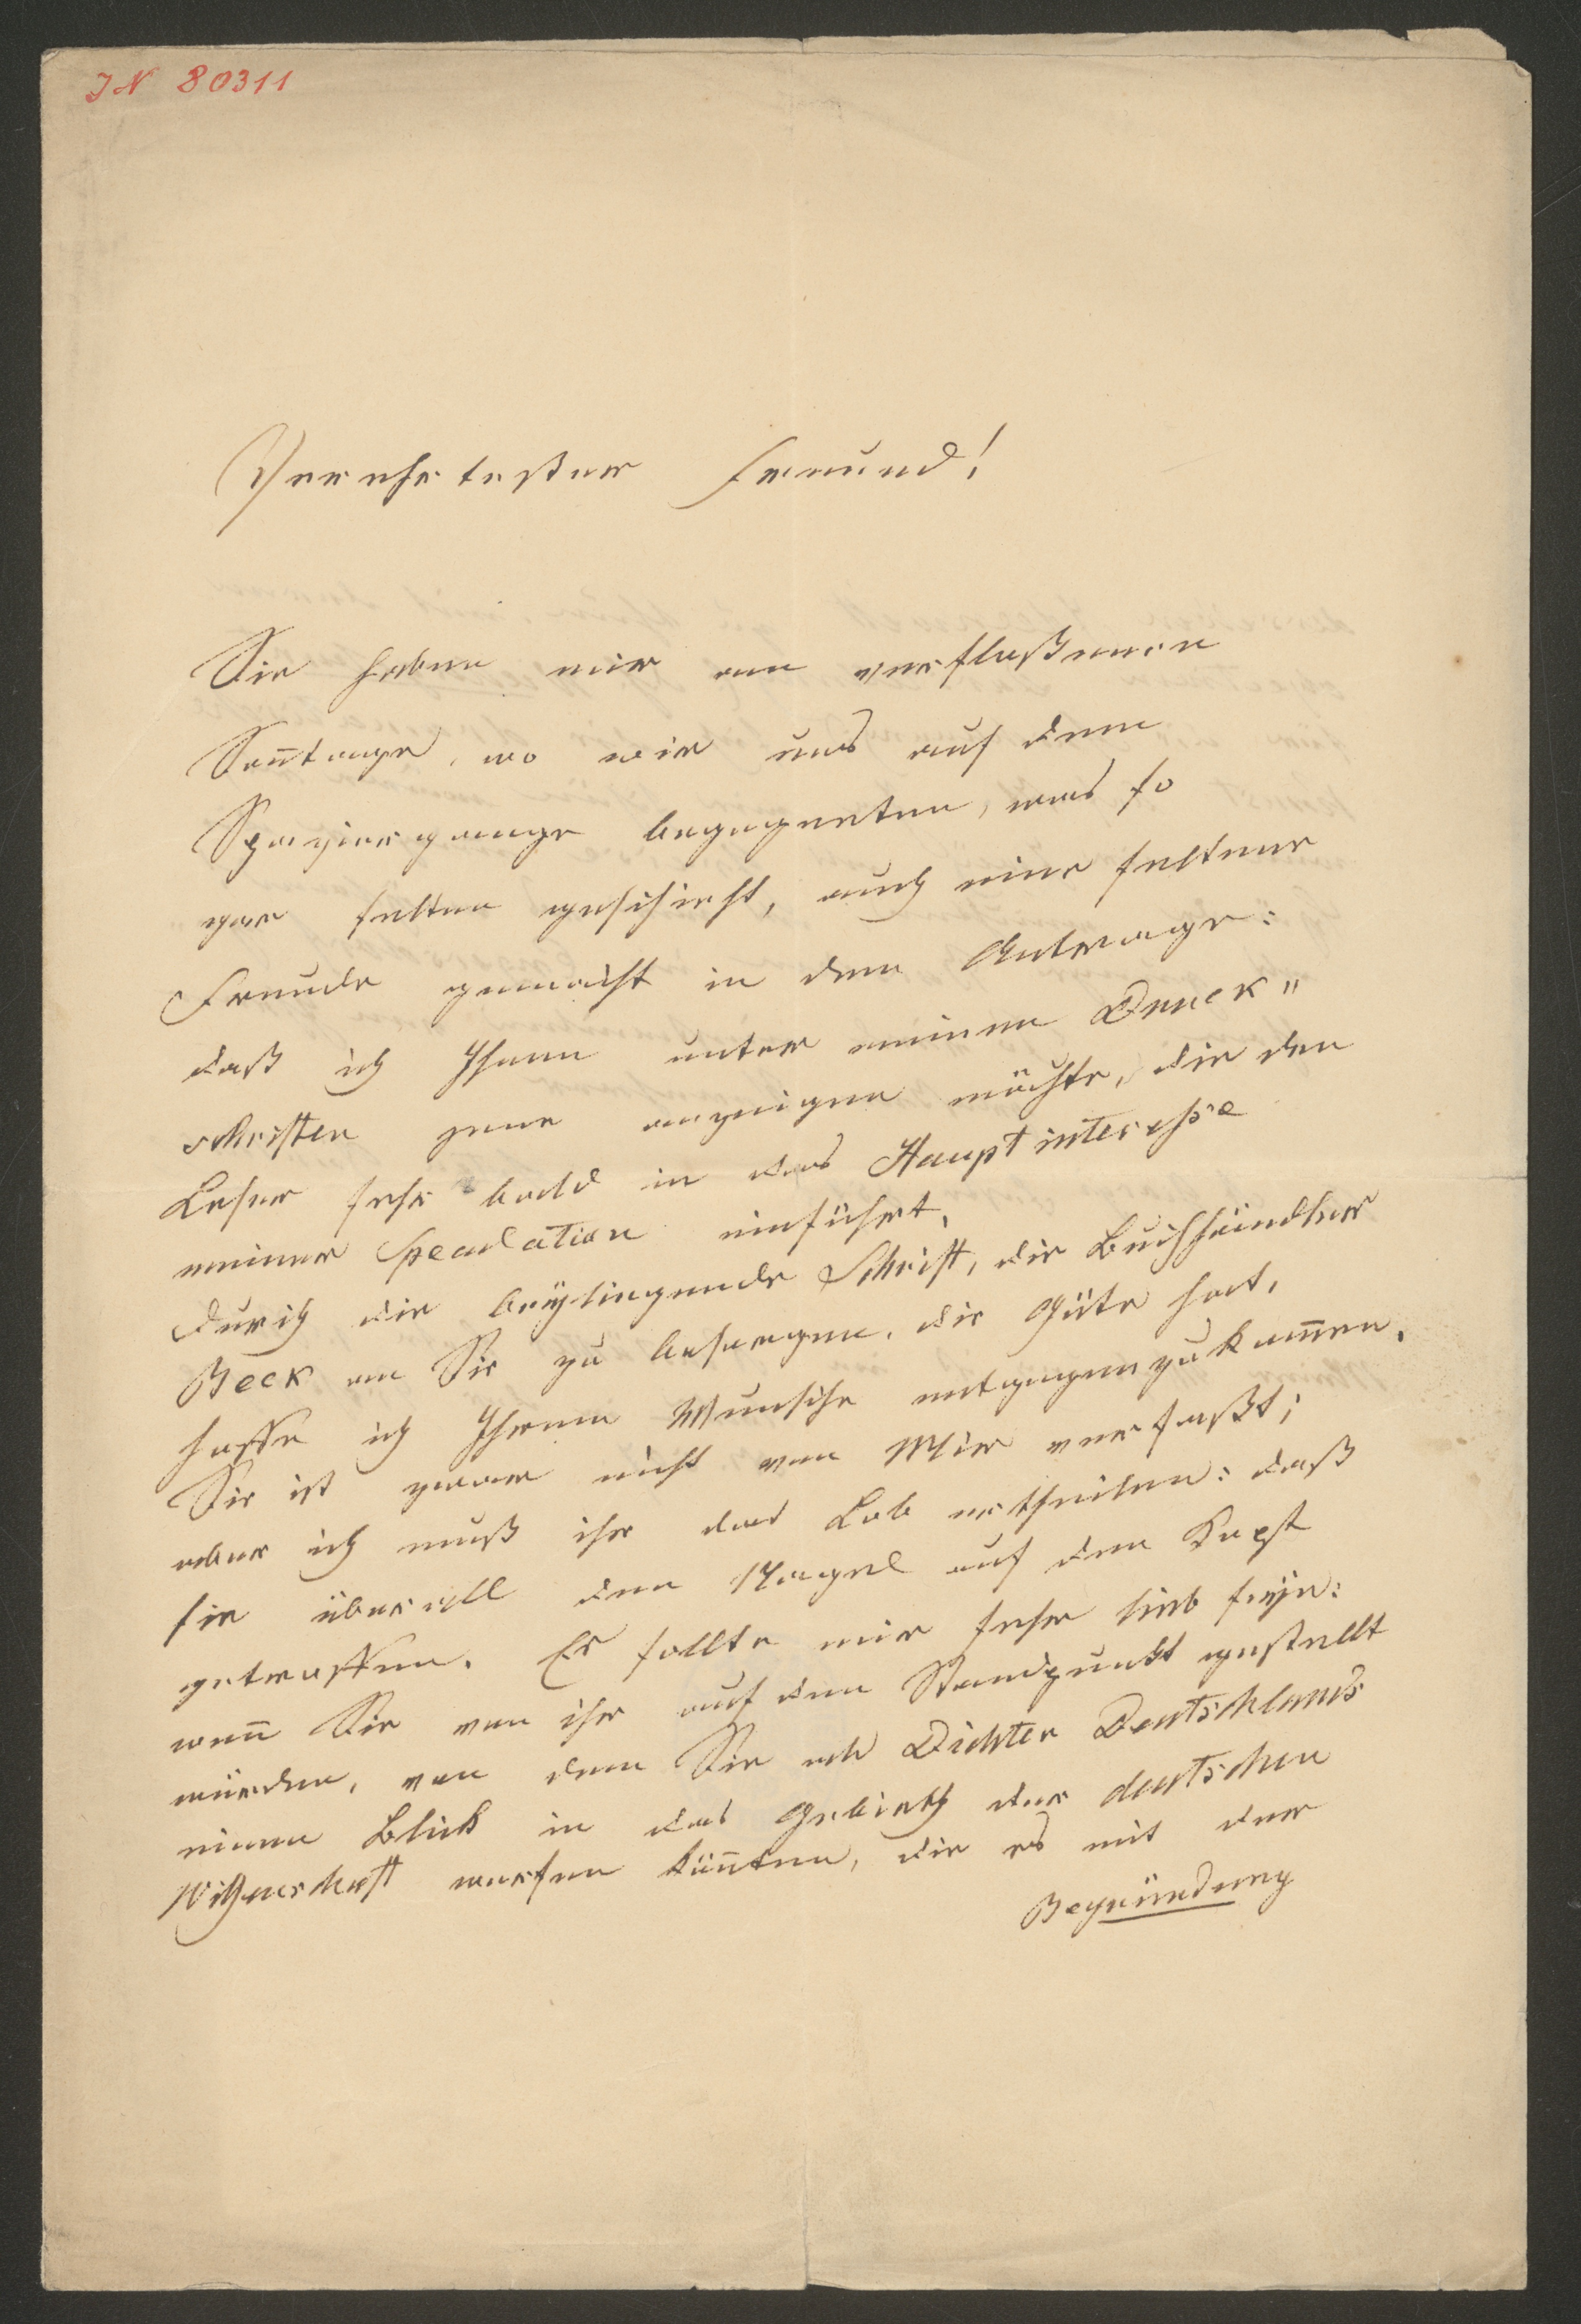 IN 80311
Verehrtester Freund!
Sie haben mir am verfloßenen
Son̄tage, wo wir uns auf dem
Spaziergange begegneten, was so
gar selten geschieht, auch eine seltene
Freude gemacht in dem Antrage:
daß ich Ihnen unter meinen Druck"
schriften jene anzeigen möchte, die den
Leser sehr bald in das Hauptinteresse
meiner Speculation einführt.
Durch die beÿliegende Schrift, die Buchhändler
Beck an Sie zu besorgen, die Güte hat,
hoffe ich Ihrem Wunsche entgegenzukom̄en.
Sie ist zwar nicht von Mir verfaßt;
aber ich muß ihr das Lob ertheilen: daß
sie überall den Nagel auf den Kopf
getroffen. Es sollte mir sehr lieb seÿn:
wen̄ Sie von ihr auf den Standpunkt gestellt
würden, von dem Sie als Dichter Deutschlands
einen Blick in das Gebieth der deutschen
Wißenschaft werfen kön̄ten, die es mit der
Begründung